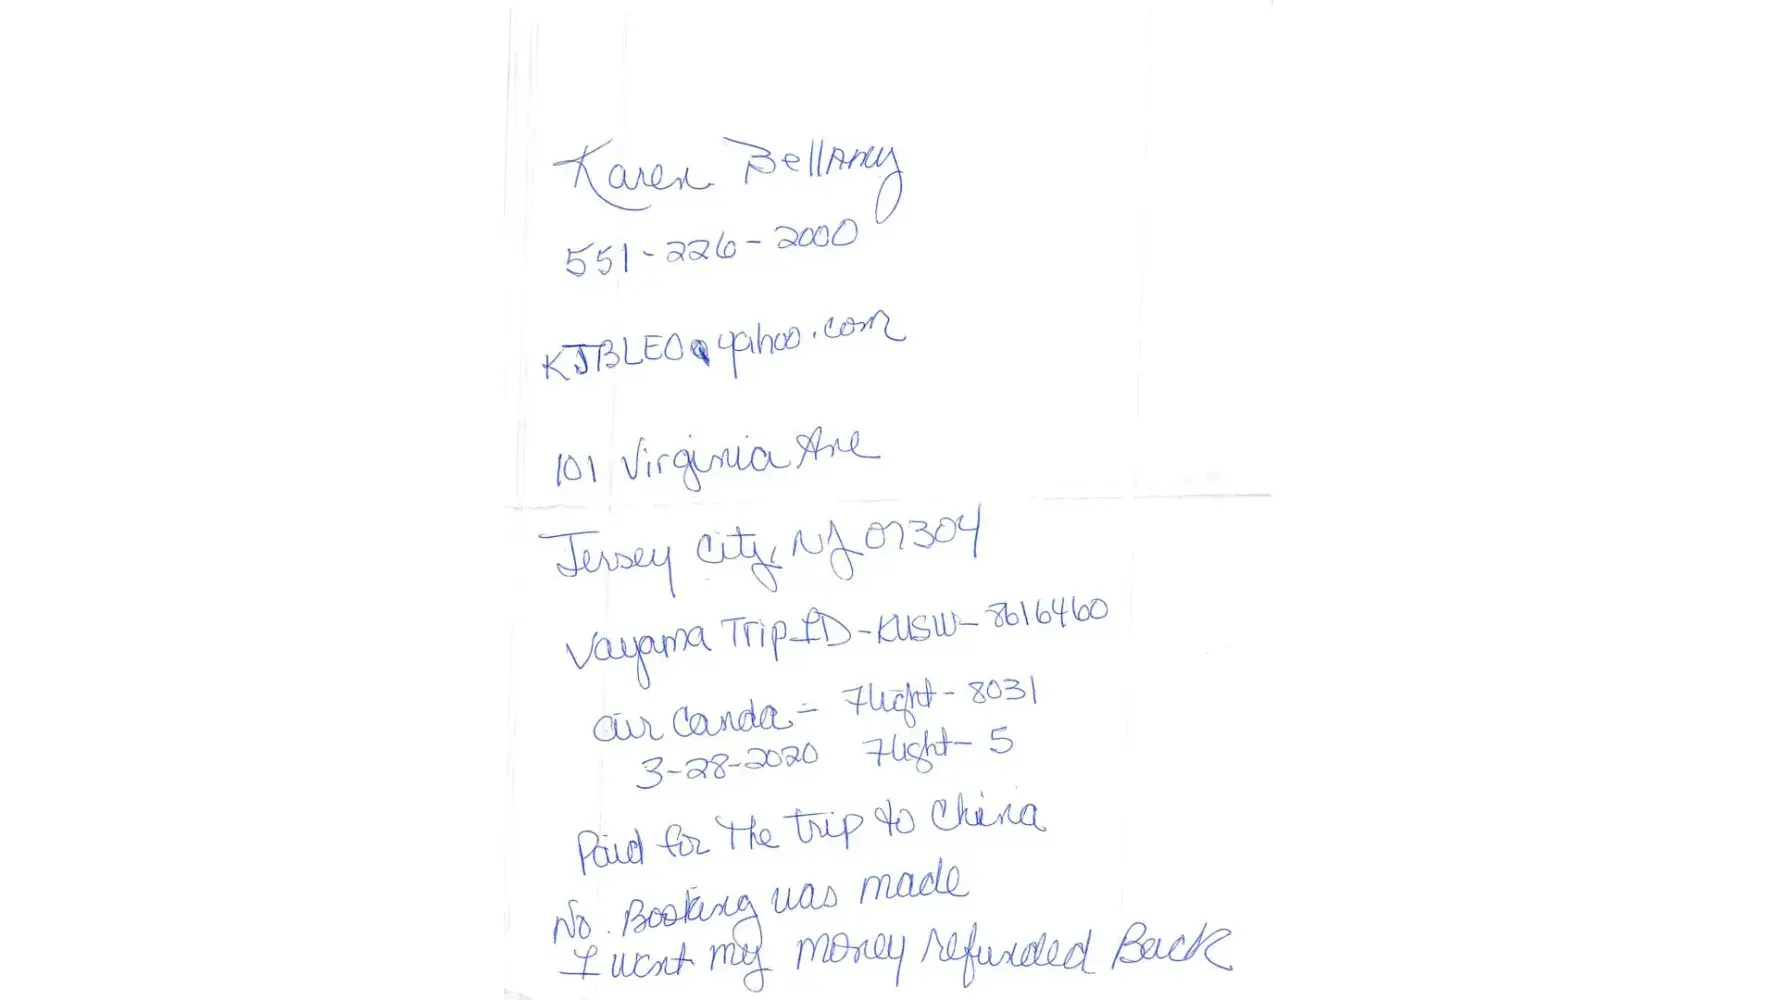 Karen Bellamy
551-226-2000
KJBLEO@yahoo.com
101 Virginia Ave
Jersey City, NJ 07304
Vayama Trip ID-KUSW-8616460
air Canda - Flight - 8031
3-28-2020 Flight- 5
Paid for The trip to China
No. Booking was made
I want my money refunded Back